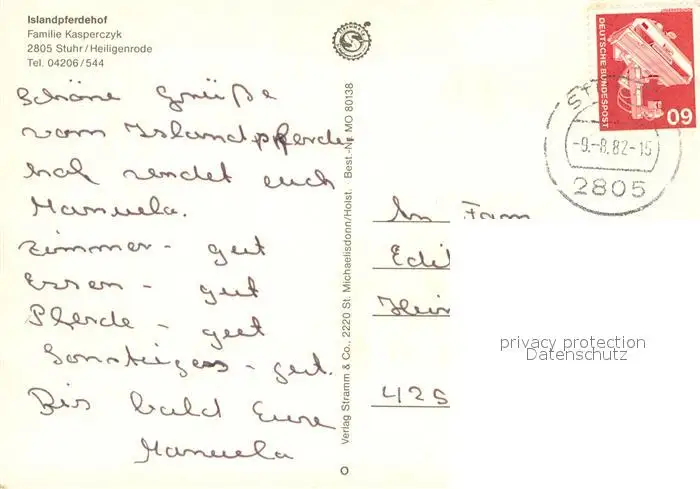 Islandpferdehof
Familie Kasperczyk
2805 Stuhr/Heiligenrode
Tel. 04206/544
Schöne Grüße
vom Islandpferde-
hof sendet euch
Manuela.
Zimmer - gut
Essen - gut
Pferde - gut
Sonstiges - gut.
Bis bald Eure
Manuela
Verlag Stramm & Co., 2220 St. Michaelisdonn/Holst. Best.-Nr. MO 80138
DEUTSCHE BUNDESPOST
60
-9.-8.82-15
2805
An Fam
Edi
Hein
425
privacy protection
Datenschutz